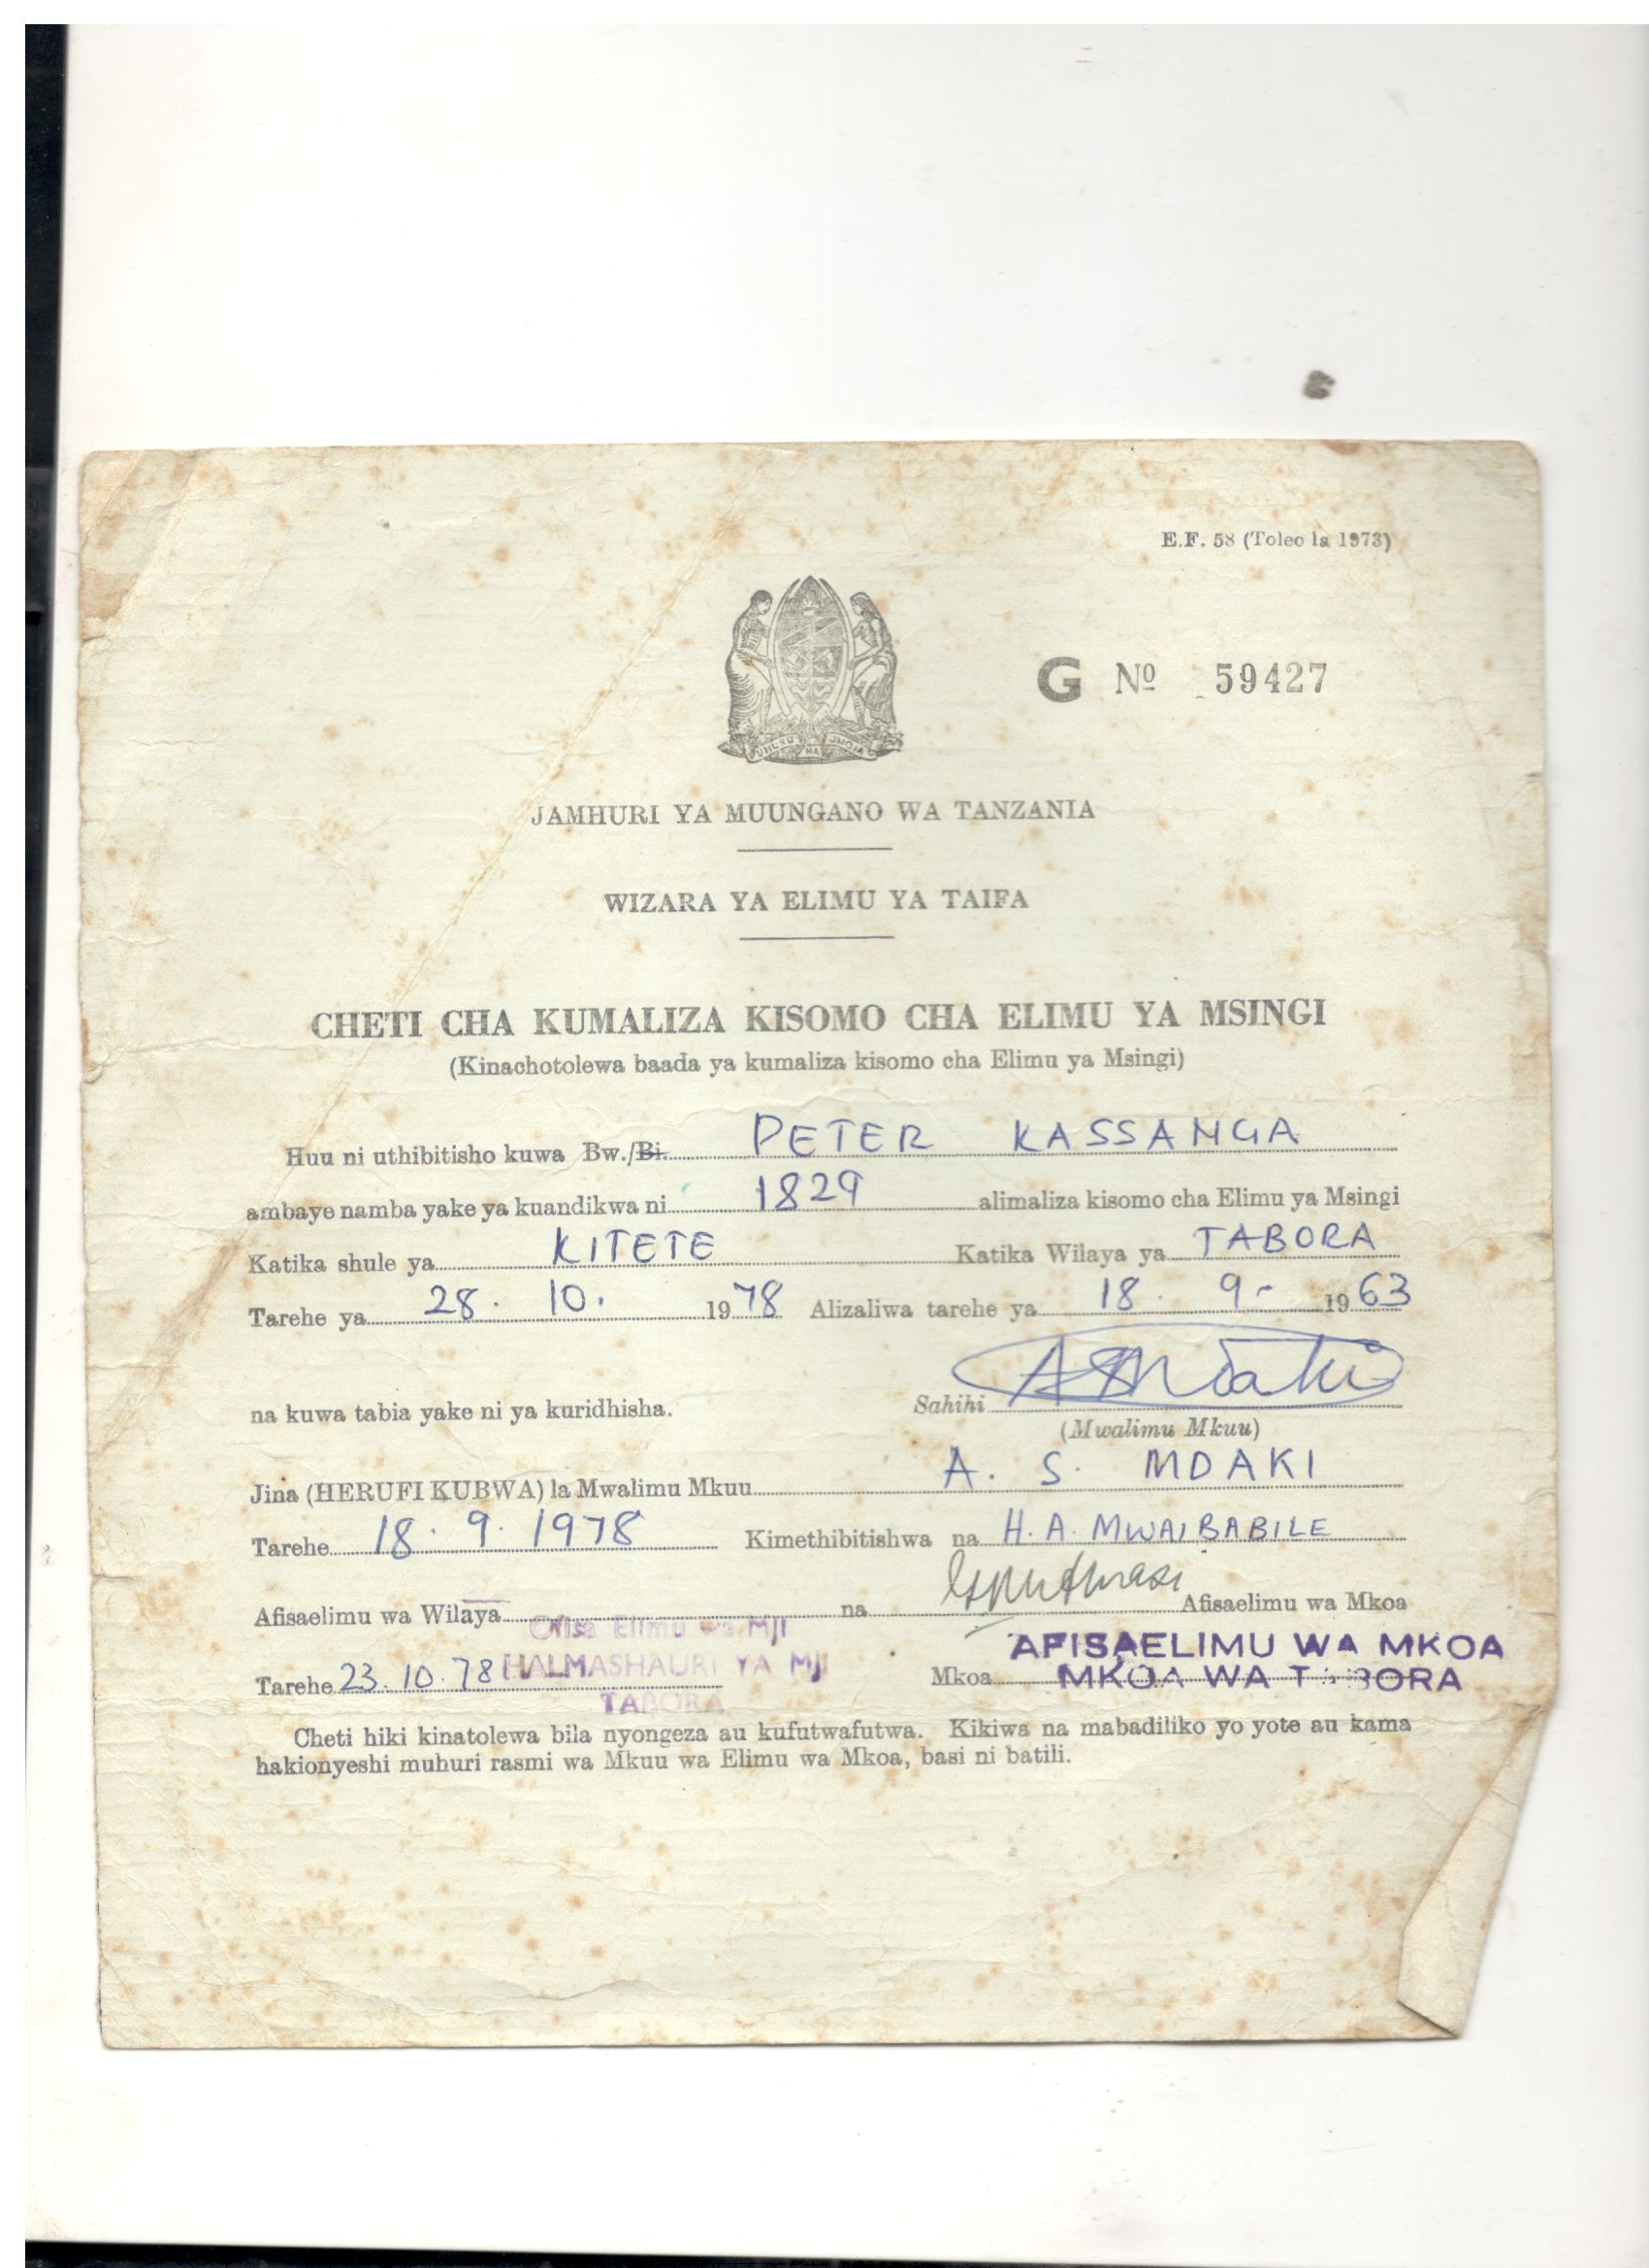 E.F. 58 (Toleo la 1973)
UHURU NA UMOJA
G Nº 59427
JAMHURI YA MUUNGANO WA TANZANIA
WIZARA YA ELIMU YA TAIFA
CHETI CHA KUMALIZA KISOMO CHA ELIMU YA MSINGI
(Kinachotolewa baada ya kumaliza kisomo cha Elimu ya Msingi)
Huu ni uthibitisho kuwa Bw./Bi. PETER KASSANGA
ambaye namba yake ya kuandikwa ni 1829 alimaliza kisomo cha Elimu ya Msingi
Katika shule ya KITETE Katika Wilaya ya TABORA
Tarehe ya 28. 10. 1978 Alizaliwa tarehe ya 18. 9- 1963
na kuwa tabia yake ni ya kuridhisha. Sahihi
(Mwalimu Mkuu)
Jina (HERUFI KUBWA) la Mwalimu Mkuu A. S. MDAKI
Tarehe 18. 9. 1978 Kimethibitishwa na H. A. MWAIBABILE
Afisaelimu wa Wilaya na Afisaelimu wa Mkoa
Ofisa Elimu wa MJI
HALMASHAURI YA MJI
TABORA
AFISAELIMU WA MKOA
MKOA WA TABORA
Tarehe 23. 10. 78 Mkoa
Cheti hiki kinatolewa bila nyongeza au kufutwafutwa. Kikiwa na mabadiliko yo yote au kama
hakionyeshi muhuri rasmi wa Mkuu wa Elimu wa Mkoa, basi ni batili.